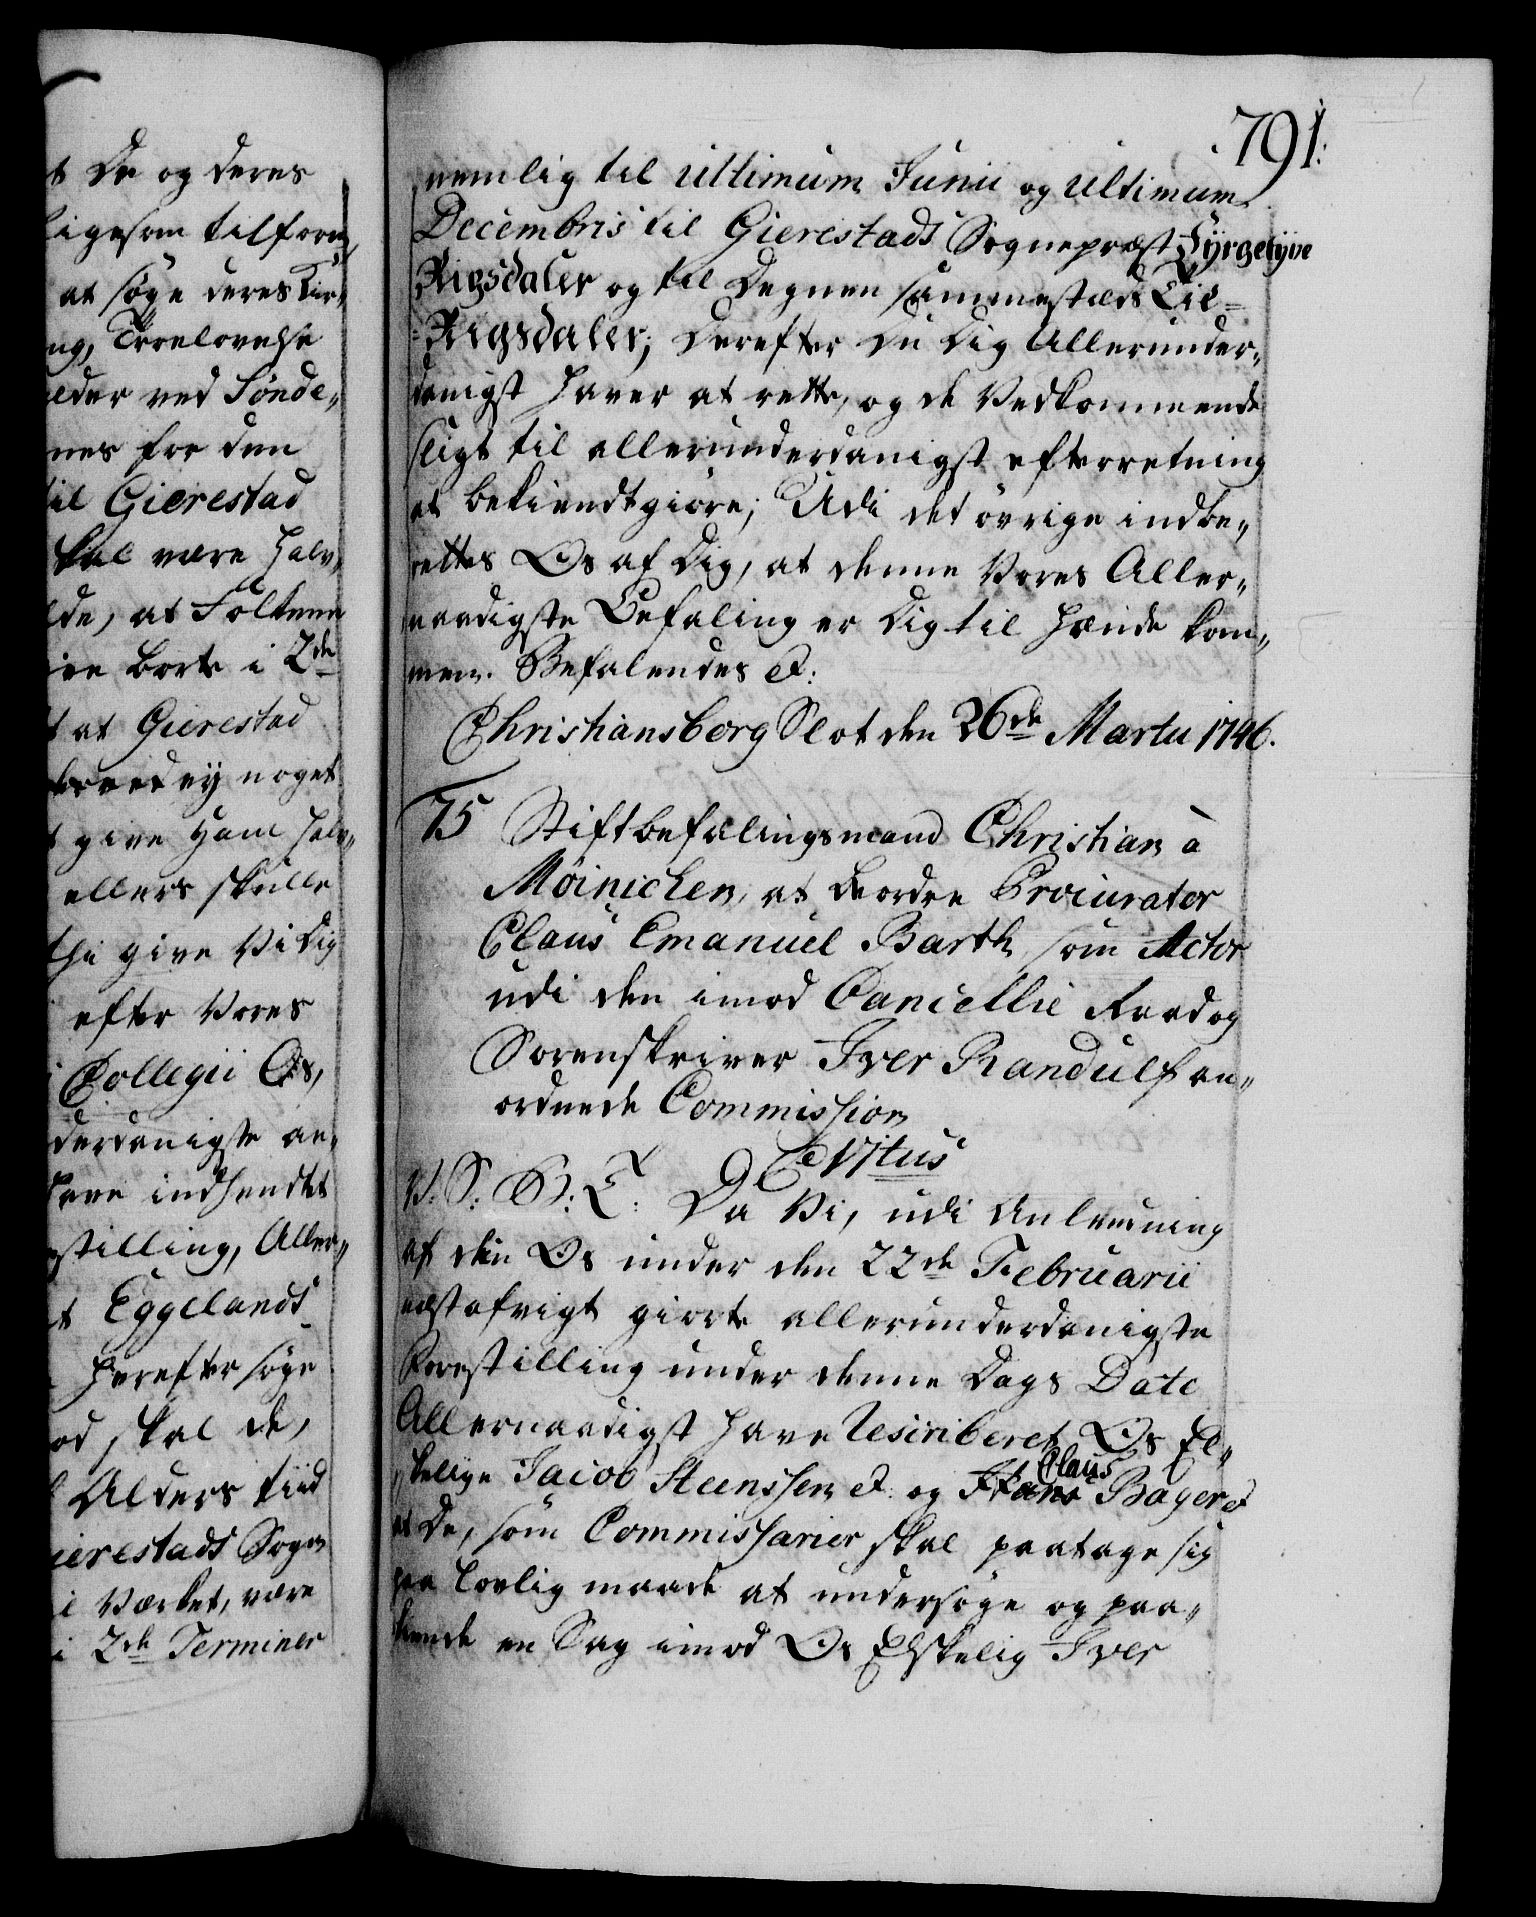 t De og deres
ligesom tilforn,
at søge deres Kir,,
ng, Troelovelse
elder ved Sönde,,
nes for den
til Gierestad
skal være halv,,
lde, at Folkene
ive borte i 2de
t at Gierestad
ey noget
t give ham halv,,
ellers skulle
thi give Vi Dig
efter Vores
Collegii Os,
derdanigste an,,
have indsendte
stilling, Aller,,
t Eggelands
herefter søge
od skal de,
Alders tiid
ierestads Sogn
i Værket, være
i 2de Terminer
791.
nemlig til ultimum Junii og ultimum
Decembris til Gierestads Sognepræst Fyrgetyve
Rigsdaler og til Degnen sammesteds Tie=
=Rigsdaler; Derefter Du Dig Allerunder,,
danigst haver at rette, og de Vedkommende
sligt til allerunderdanigst efterretning
at bekiendtgiöre; Udi det övrige indbe,,
rettes Os af Dig, at denne Vores Aller,,
naadigste Befaling er Dig til hænde kom,,
men. Befalendes &:
Christiansborg Slot den 26de Martii 1746.
75 Stiftbefalingsmand Christian à
Möinichen, at beordre Procurator
Claus Emanuel Barth, som Actor
udi den imod Cancellie Raad og
Sorenskriver Iver Randulf an,,
ordnede Commission
C VItus
V: S: G: T: Da Vi, udi Anledning
af din Os under den 22de Februarii
næstafvigt giorte allerunderdanigste
Forestilling under denne Dags Dato
Allernaadigst have rescriberet Os El,,
skelige Jacob Steenssen &: og Hans Claus Bager &
at De, som Commissarier skal paatage sig
paa lovlig maade at undersöge og paa,,
kiende en Sag imod Os Elskelig Iver